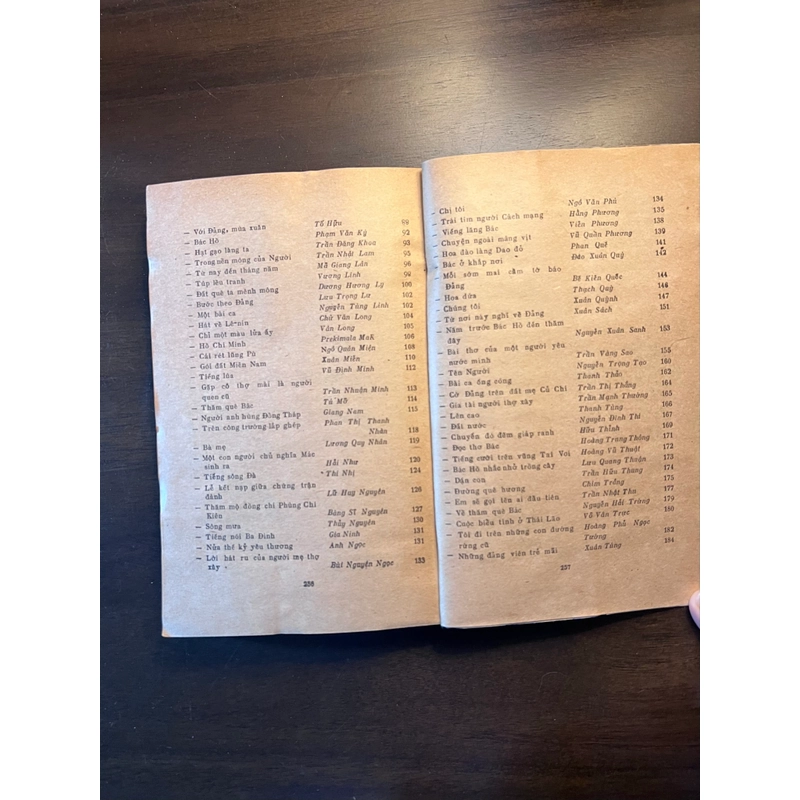 — Với Đảng, mùa xuân Tố Hữu 89
— Bác Hồ Phạm Văn Ký 92
— Hạt gạo làng ta Trần Đăng Khoa 93
— Trong nền móng của Người Trần Nhật Lam 95
— Từ nay đến tháng năm Mã Giang Lân 98
— Túp lều tranh Vương Linh 99
— Đất quê ta mênh mông Dương Hương Ly 100
— Bước theo Đảng Lưu Trọng Lư 102
— Một bài ca Nguyễn Tùng Linh 102
— Hát về Lê-nin Chử Văn Long 104
— Chỉ một màu lửa ấy Văn Long 105
— Hồ Chí Minh Prekimala Mak 106
— Cái rét lũng Pù Ngô Quân Miện 108
— Gói đất Miền Nam Xuân Miễn 110
— Tiếng lúa Vũ Đình Minh 112
— Gặp cô thợ mai là người
quen cũ Trần Nhuận Minh 113
— Thăm quê Bác Tú Mỡ 114
— Người anh hùng Đồng Tháp Giang Nam 115
— Trên công trường lắp ghép Phan Thị Thanh
Nhàn 118
— Bà mẹ Lương Quy Nhân 119
— Một con người chủ nghĩa Mác
sinh ra Hải Như 120
— Tiếng sông Đà Thi Nhị 124
— Lễ kết nạp giữa chừng trận
đánh Lữ Huy Nguyên 126
— Thăm mộ đồng chí Phùng Chí
Kiên Bàng Sĩ Nguyên 127
— Sông mưa Thủy Nguyên 130
— Tiếng nói Ba Đình Gia Ninh 131
— Nửa thế kỷ yêu thương Anh Ngọc 131
— Lời hát ru của người mẹ thợ
xây Bùi Nguyên Ngọc 133
236
— Chị tôi Ngô Văn Phú 134
— Trái tim người Cách mạng Hằng Phương 135
— Viếng lăng Bác Viễn Phương 138
— Chuyện ngoài máng vịt Vũ Quần Phương 139
— Hoa đào làng Dao đỏ Phan Quế 141
— Bác ở khắp nơi Đào Xuân Quý 142
— Mỗi sớm mai cầm tờ báo
Đảng Bế Kiến Quốc 144
— Hoa dừa Thạch Quỳ 146
— Chúng tôi Xuân Quỳnh 147
— Từ nơi này nghĩ về Đảng Xuân Sách 151
— Năm trước Bác Hồ đến thăm
đây Nguyễn Xuân Sanh 153
— Bài thơ của một người yêu
nước mình Trần Vàng Sao 155
— Tên Người Nguyễn Trọng Tạo 160
— Bài ca ống cóng Thanh Thảo 162
— Cờ Đảng trên đất mẹ Củ Chi Trần Thị Thắng 164
— Gia tài người thợ xây Trần Mạnh Thường 165
— Lên cao Thanh Tùng 166
— Đất nước Nguyễn Đình Thi 167
— Chuyến đò đêm giáp ranh Hữu Thỉnh 169
— Đọc thơ Bác Hoàng Trung Thông 171
— Tiếng cười trên vùng Tai Voi Hoàng Vũ Thuật 172
— Bác Hồ nhắc nhở trồng cây Lưu Quang Thuận 173
— Dặn con Trần Hữu Thung 174
— Đường quê hương Chim Trắng 175
— Em sẽ gọi tên ai đầu tiên Trần Nhật Thu 177
— Về thăm quê Bác Nguyễn Hải Trừng 179
— Cuộc biểu tình ở Thái Lào Võ Văn Trực 180
— Tôi đi trên những con đường
rừng cũ Hoàng Phủ Ngọc
Tường 182
— Những đảng viên trẻ mãi Xuân Tùng 184
237